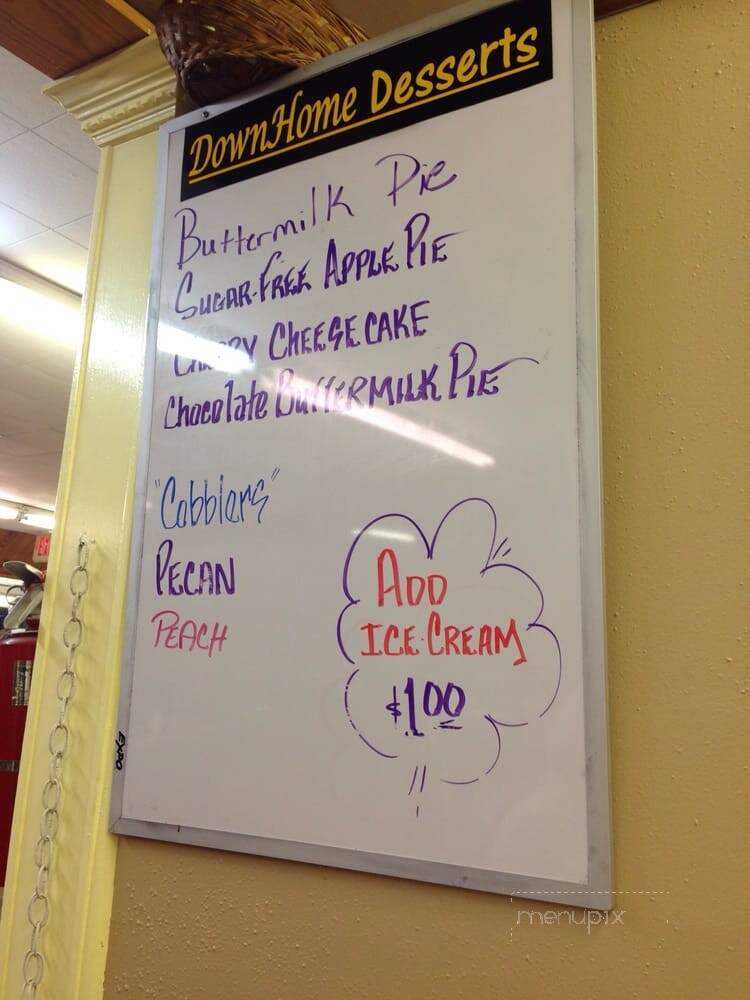 DownHome Desserts
Buttermilk Pie
SUGAR-FREE APPLE PIE
CHERRY CHEESECAKE
Chocolate BUTTERMILK PIE
"Cobblers"
PECAN
PEACH
ADD
ICE-CREAM
$1.00
EXPO
menupix